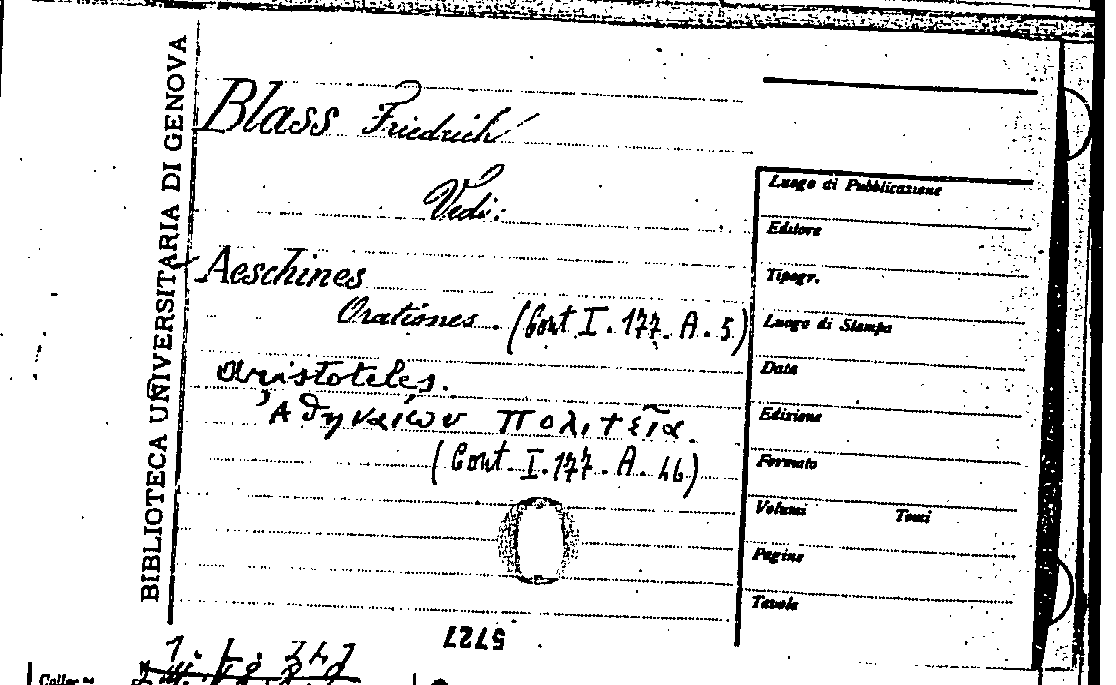 BIBLIOTECA UNIVERSITARIA DI GENOVA
Blass Friedrich
Vedi:
Aeschines
Orationes. (Cont. I. 177. A. 5)
Aristoteles.
Ἀθηναίων πολιτεῖα.
(Cont. I. 177. A. 46)
Luogo di Pubblicazione
Editore
Tipogr.
Luogo di Stampa
Data
Edizione
Formato
Volumi Tomi
Pagine
Tavole
5727